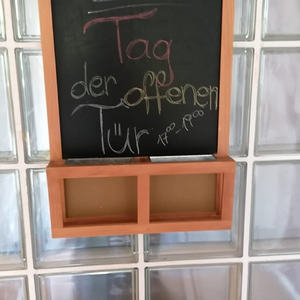 Tag
der offenen
Tür 17⁰⁰-19⁰⁰